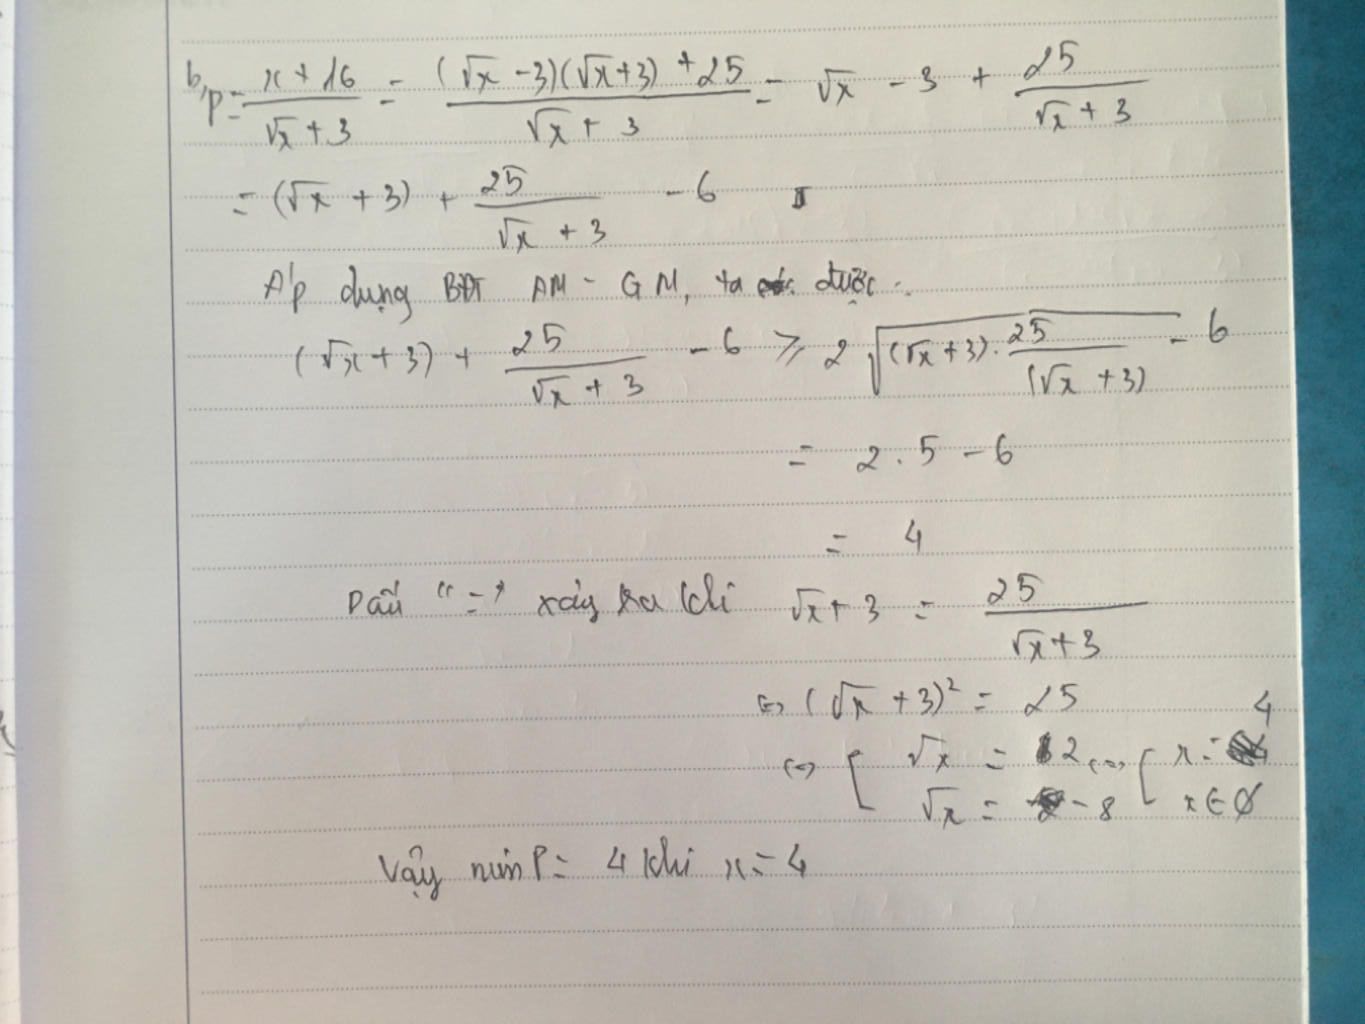 b, P = \frac{x + 16}{\sqrt{x} + 3} = \frac{(\sqrt{x} - 3)(\sqrt{x} + 3) + 25}{\sqrt{x} + 3} = \sqrt{x} - 3 + \frac{25}{\sqrt{x} + 3}
= (\sqrt{x} + 3) + \frac{25}{\sqrt{x} + 3} - 6
Áp dụng BĐT AM - GM, ta được:
(\sqrt{x} + 3) + \frac{25}{\sqrt{x} + 3} - 6 ≥ 2 \sqrt{(\sqrt{x} + 3) . \frac{25}{(\sqrt{x} + 3)}} - 6
= 2 . 5 - 6
= 4
Dấu "=" xảy ra khi \sqrt{x} + 3 = \frac{25}{\sqrt{x} + 3}
⇔ (\sqrt{x} + 3)^2 = 25
⇔ [ \sqrt{x} = 2 ⇔ [ x = 4
\sqrt{x} = -8 x ∈ ∅
Vậy min P = 4 khi x = 4